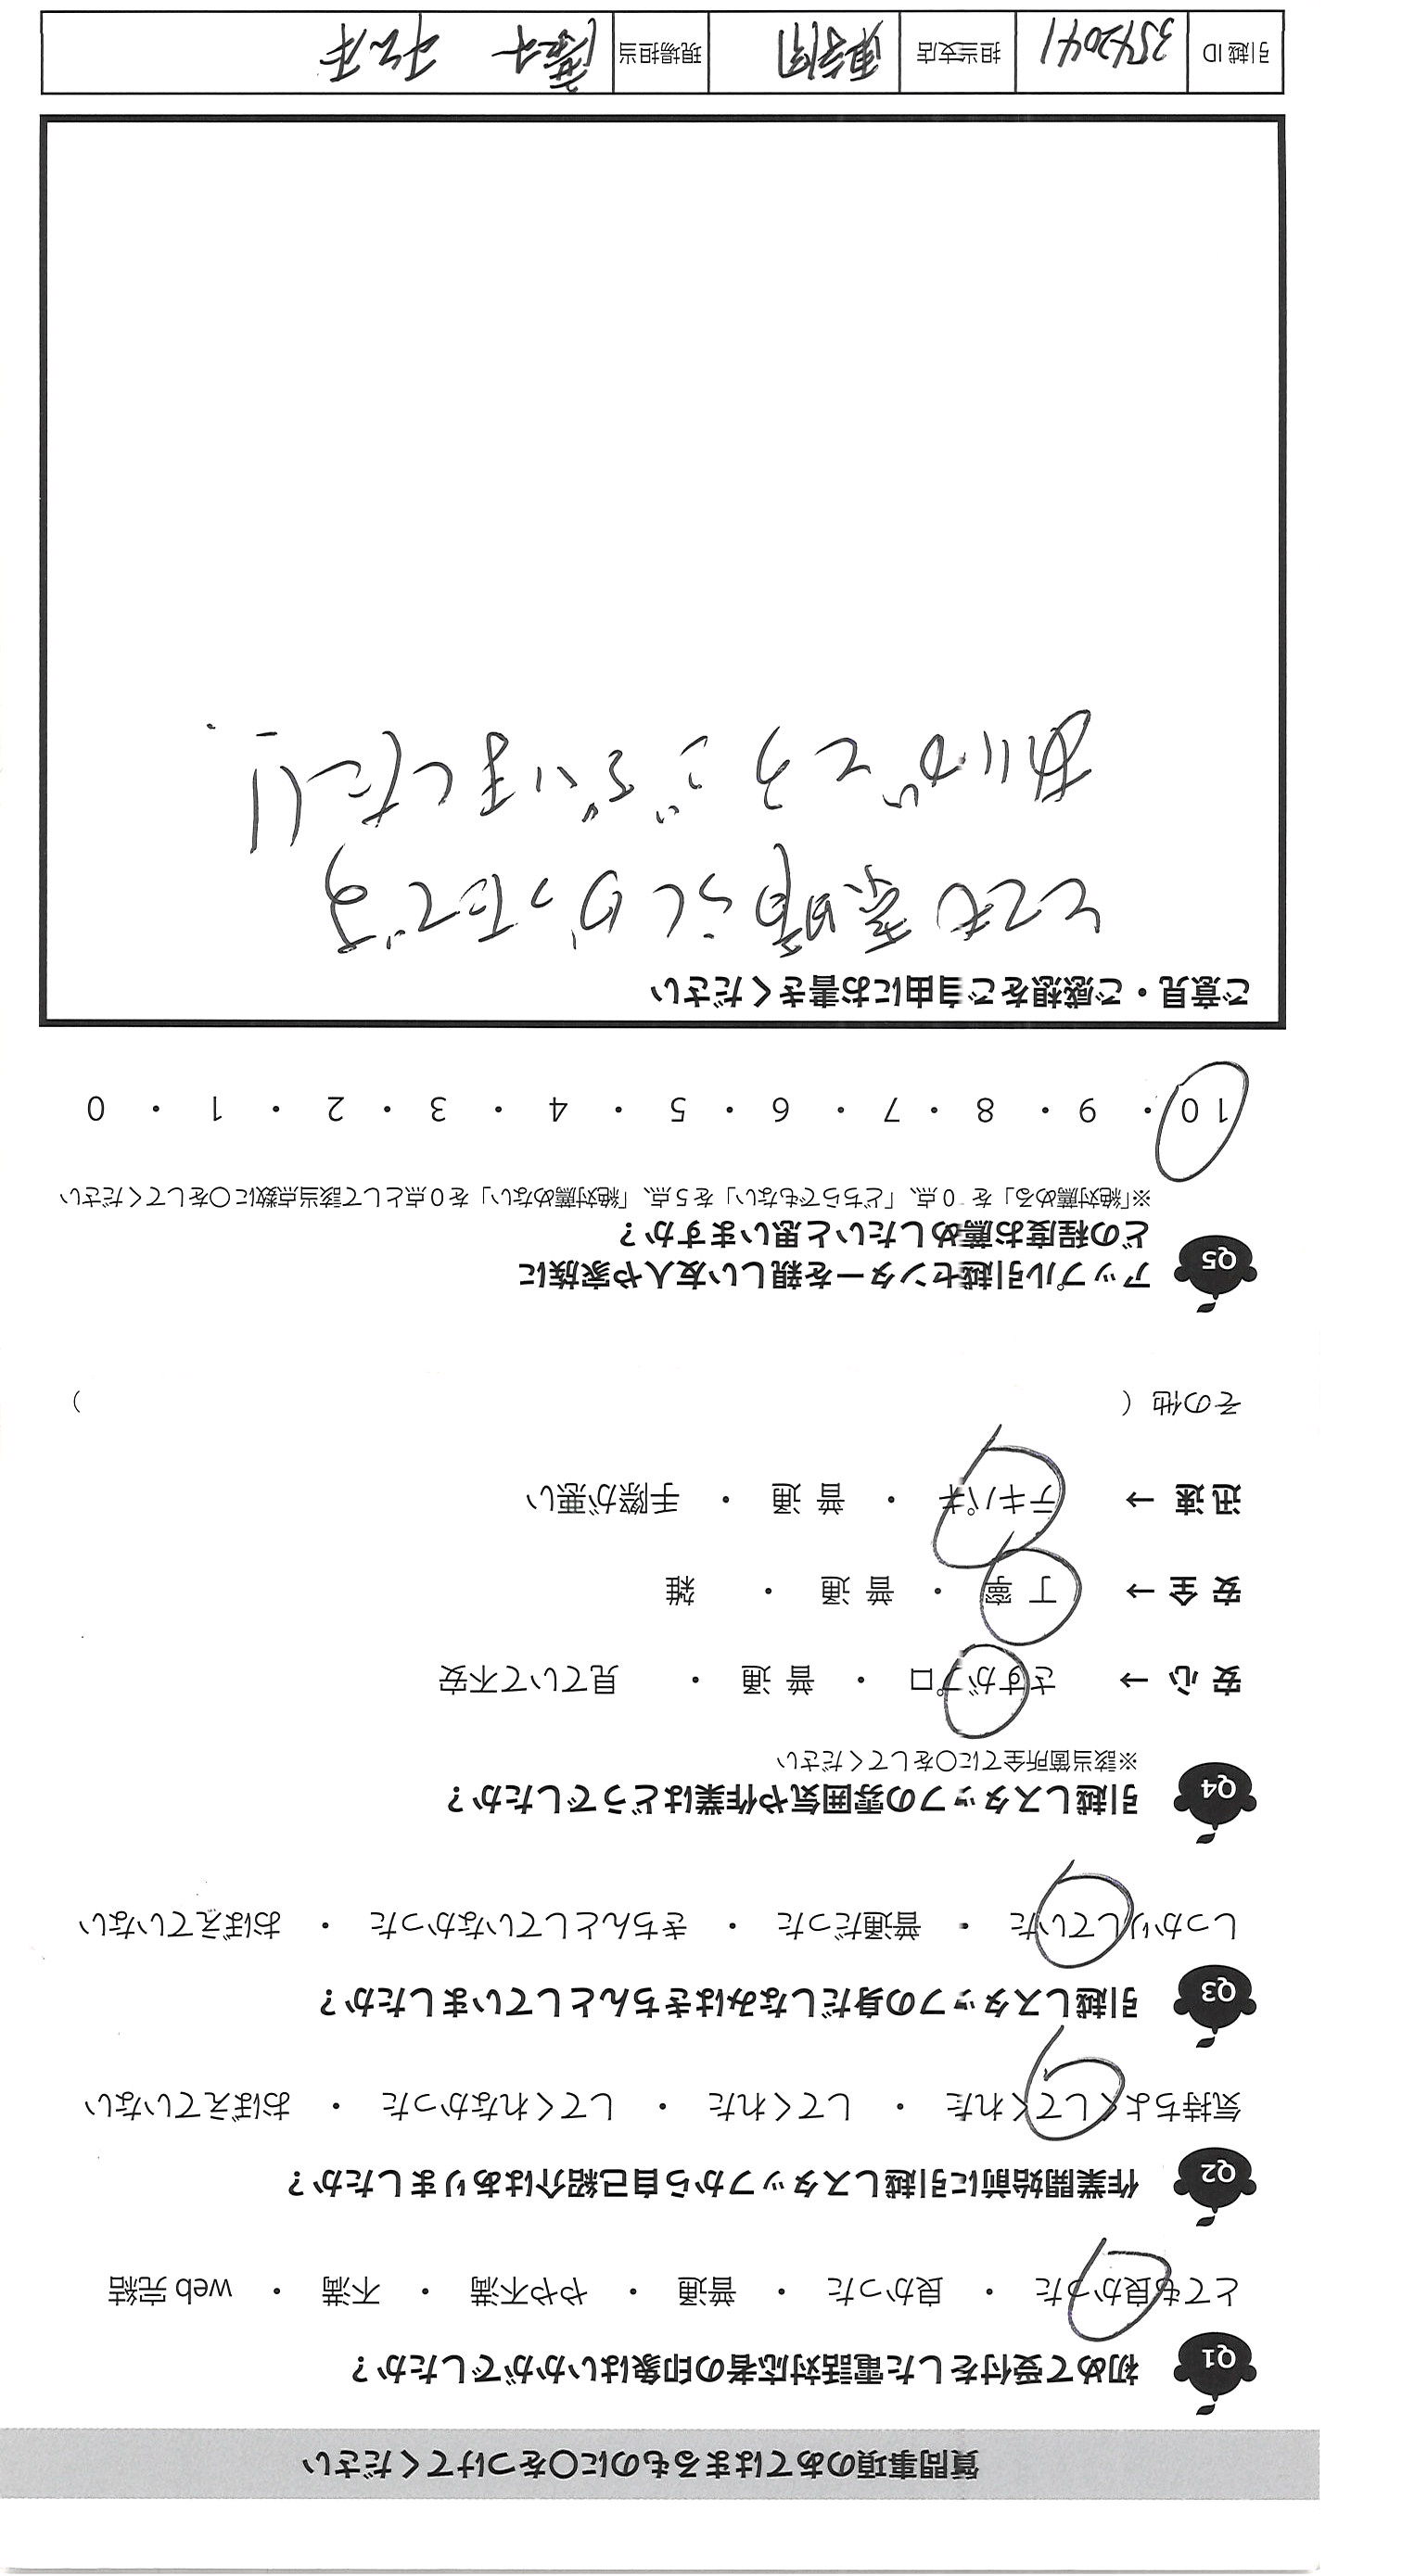 質問事項のあてはまるものに○をつけてください
Q1 初めて受付をした電話対応者の印象はいかがでしたか?
とても良かった ・ 良かった ・ 普通 ・ やや不満 ・ 不満 ・ web 完結
Q2 作業開始前に引越しスタッフから自己紹介はありましたか?
気持ちよくしてくれた ・ してくれた ・ してくれなかった ・ おぼえていない
Q3 引越しスタッフの身だしなみはきちんとしていましたか?
しっかりしていた ・ 普通だった ・ きちんとしていなかった ・ おぼえていない
Q4 引越しスタッフの雰囲気や作業はどうでしたか?
※該当箇所全てに○をしてください
安 心 → さすがプロ ・ 普 通 ・ 見ていて不安
安 全 → 丁 寧 ・ 普 通 ・ 雑
迅 速 → テキパキ ・ 普 通 ・ 手際が悪い
その他 ( )
Q5 アップル引越センターを親しい友人や家族に
どの程度お薦めしたいと思いますか?
※「絶対薦める」を 0点、「どちらでもない」を5点、「絶対薦めない」を0点として該当点数に○をしてください
10 ・ 9 ・ 8 ・ 7 ・ 6 ・ 5 ・ 4 ・ 3 ・ 2 ・ 1 ・ 0
ご意見・ご感想をご自由にお書きください
とても素晴らしかったです
ありがとうございました!!
引越 ID 3542041 担当支店 現場担当